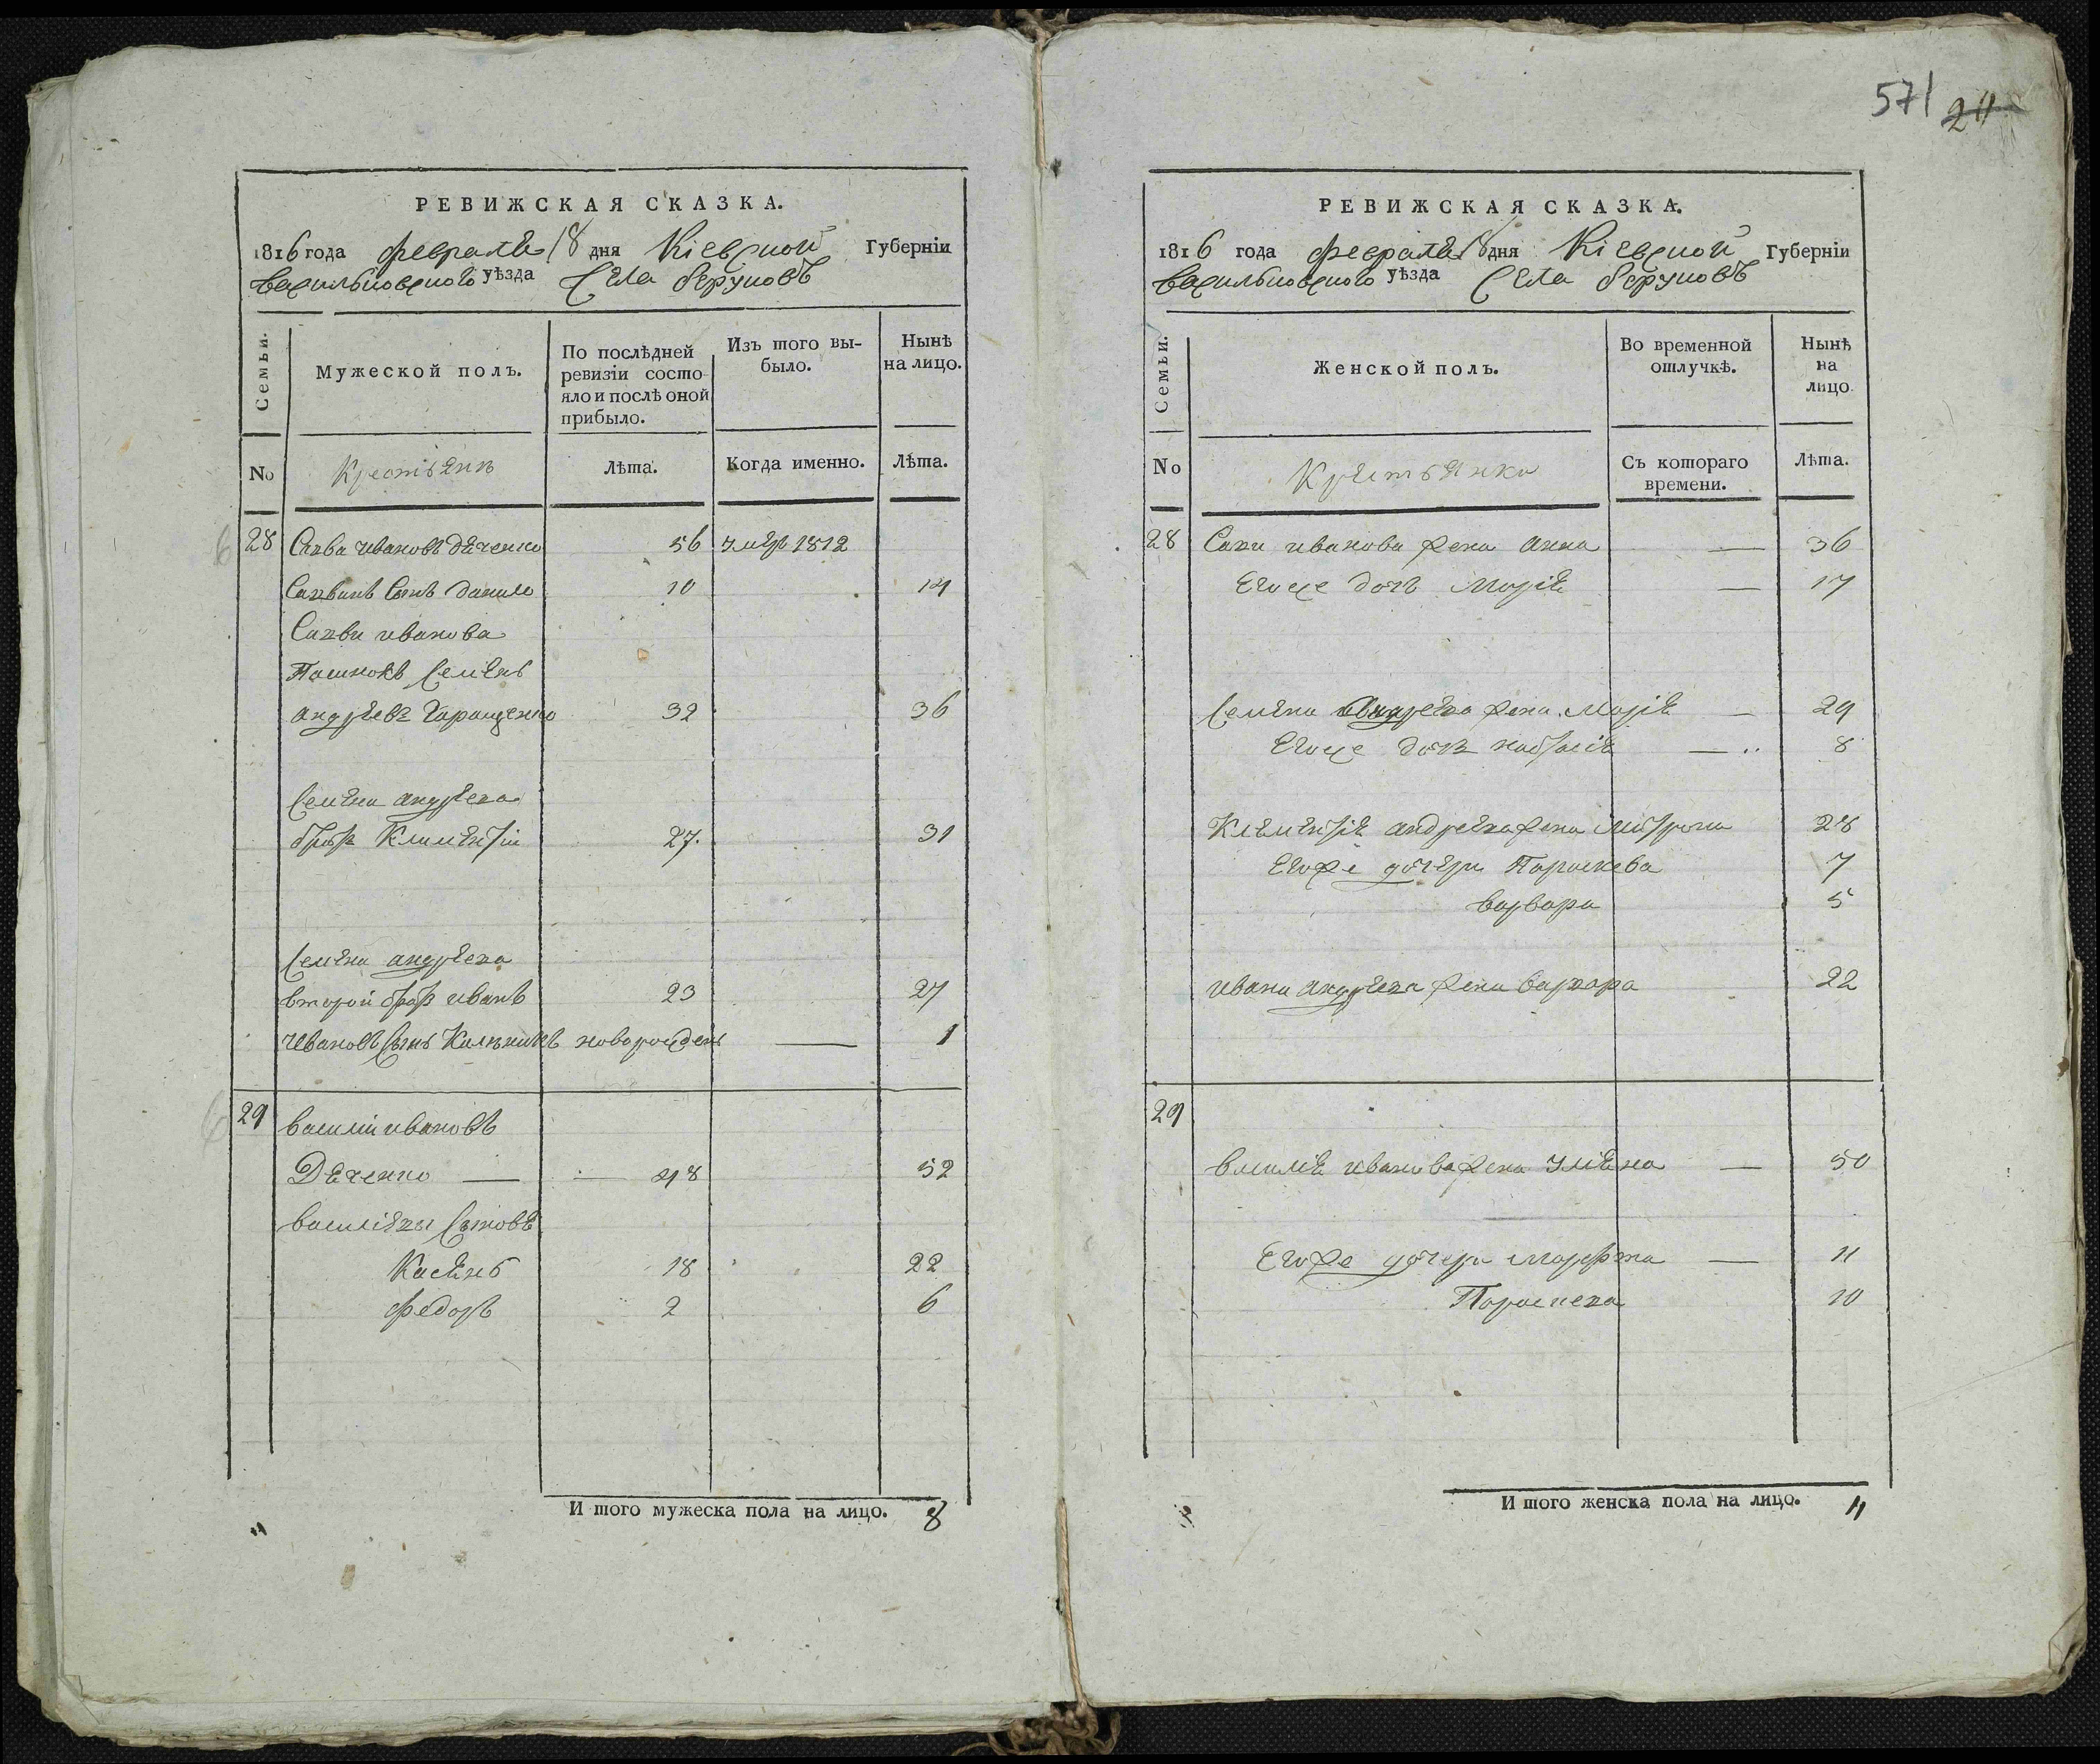 571 24
РЕВИЖСКАЯ СКАЗКА.
1816 года февраля 18 дня Кіевской Губерніи
васильковского уѣзда Села
Семьи.
Мужеской полъ.
По послѣдней ревизіи состояло и послѣ оной прибыло.
Изъ того выбыло.
Нынѣ на лицо.
No
Лѣта.
Когда именно.
Лѣта.
28 Савва ивановъ дяченко 56 умер 1812
Саввинъ Сынъ данило 10 14
Саввы иванова
Семенъ
андреевъ 32 36
Семена андреева
братъ Климентій 27. 31
Семена андреева
второй братъ иванъ 23 27
ивановъ Сынъ новорожденъ — 1
29 василий ивановъ
Дяченко — — 48 52
василіевы Сыновя
Касянъ 18 22
федоръ 2 6
И того мужеска пола на лицо. 8
РЕВИЖСКАЯ СКАЗКА.
1816 года февраля 18 дня Кіевской Губерніи
васильковского уѣзда Села
Семьи.
Женской полъ.
Во временной отлучкѣ.
Нынѣ на лицо
No
Крестьянки
Съ котораго времени.
Лѣта.
28 Савы иванова жена анна — 36
Егоже дочь Марія — 17
Семена андреева жена Марія — 29
Егоже дочь настасія — 8
Климентія андреева жена Матрона 28
Егоже дочери Параскева 7
варвара 5
ивана андреева жена варвара 22
29
василія иванова жена Уляна — 50
Егоже дочери марфта — 11
Параскева 10
И того женска пола на лицо. 11